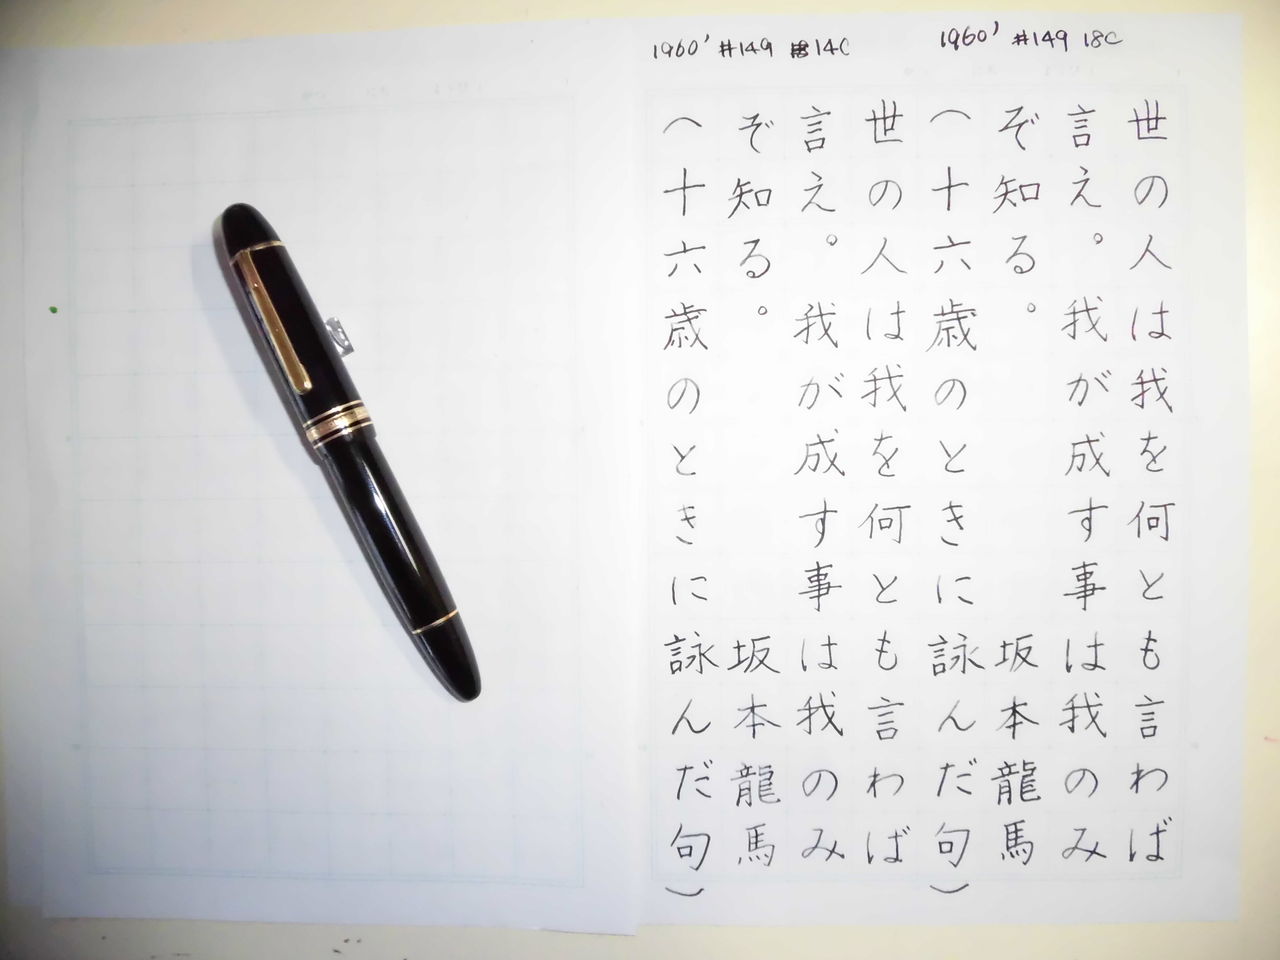 1960' #149 18C
世の人は我を何とも言わば
言え。我が成す事は我のみ
ぞ知る。 坂本龍馬
(十六歳のときに詠んだ句)
1960' #149 14C
世の人は我を何とも言わば
言え。我が成す事は我のみ
ぞ知る。 坂本龍馬
(十六歳のときに詠んだ句)